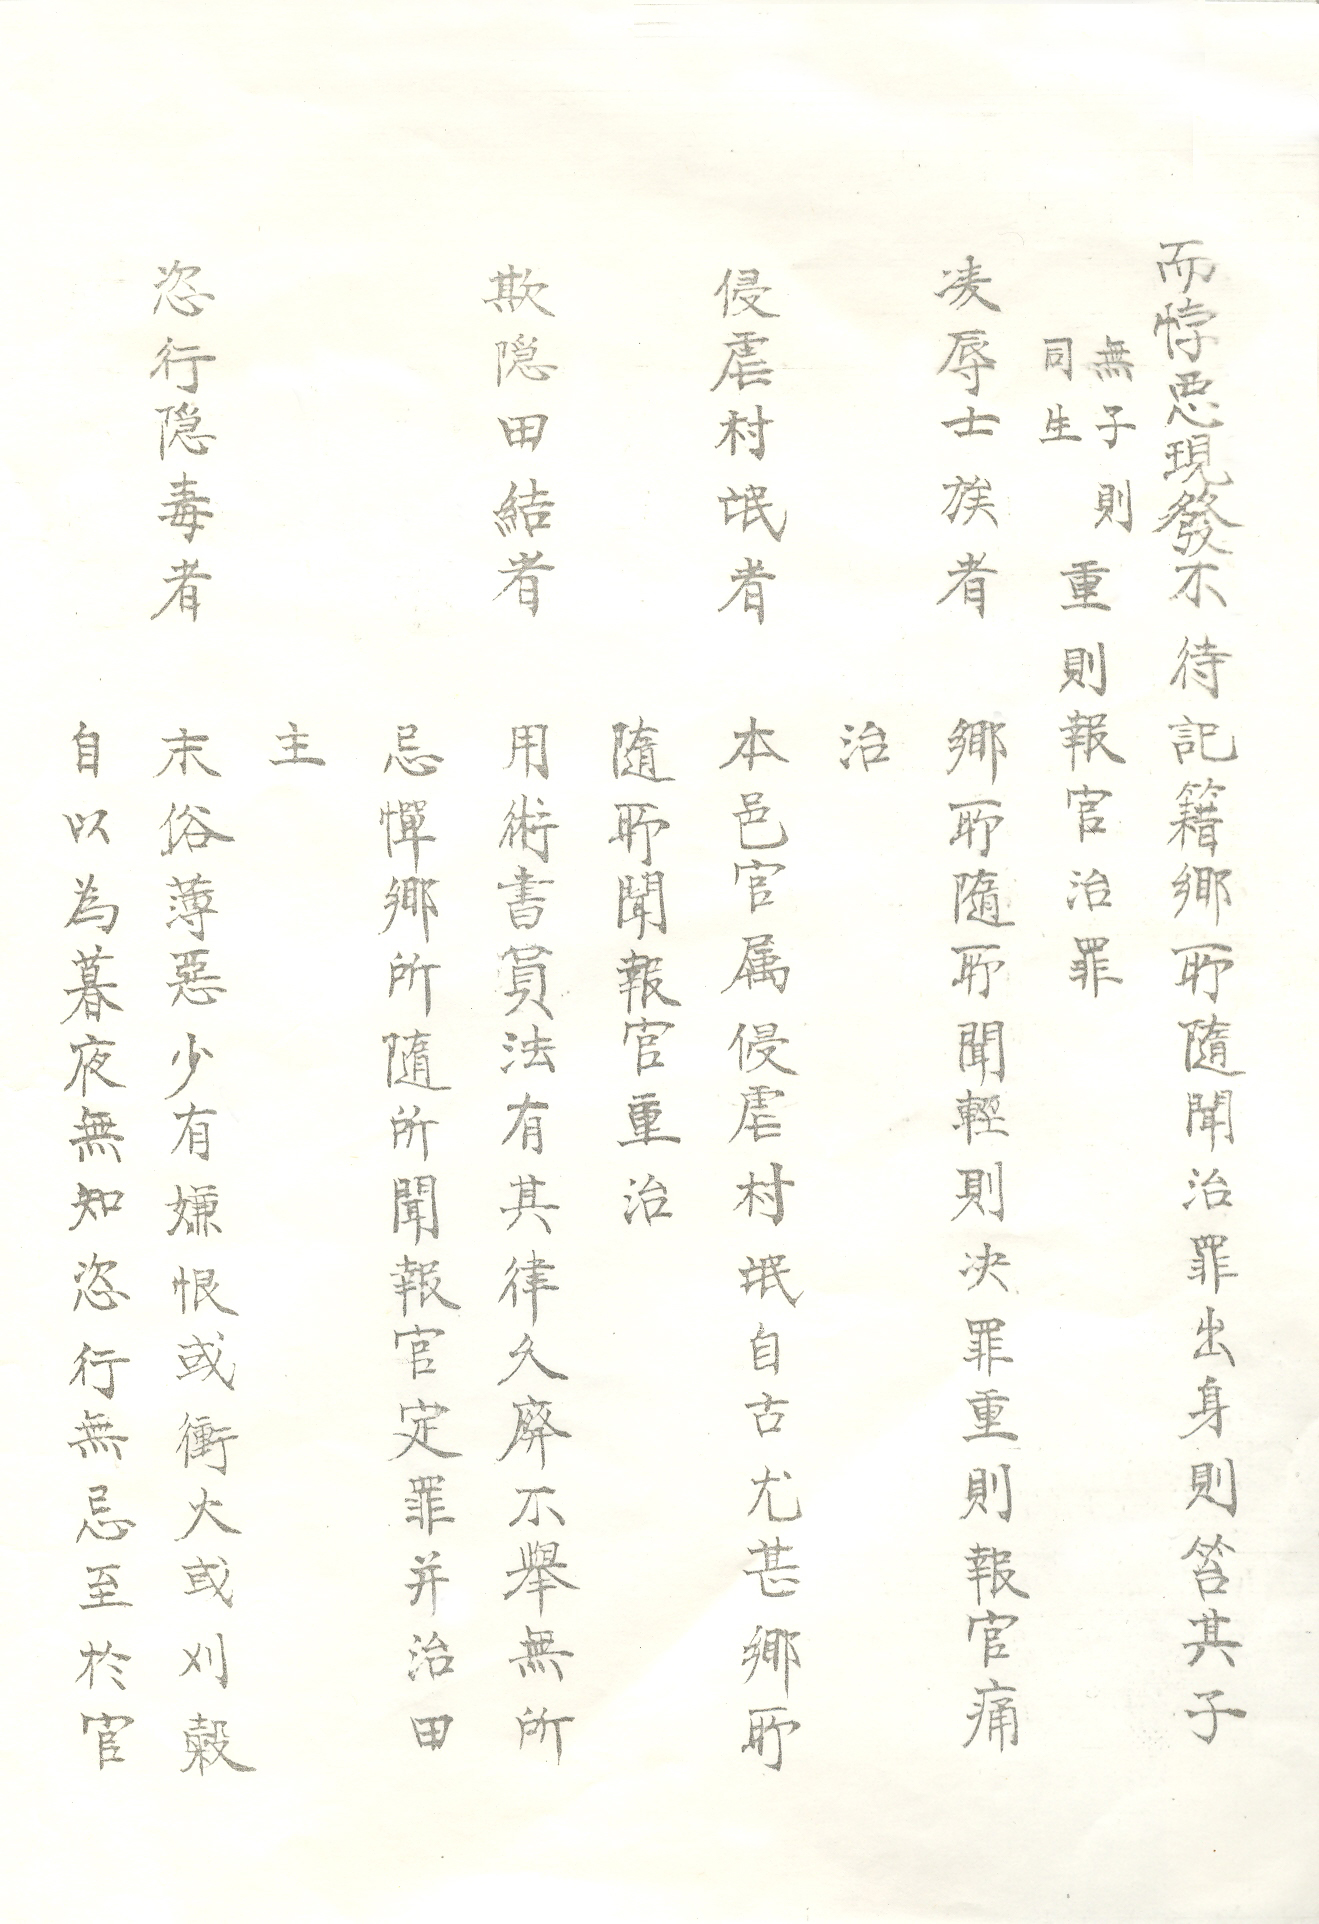 而悖悪現發不待記籍鄉所隨聞治罪出身則笞其子
無子則
同生
重則報官治罪
凌辱士族者 鄉所隨所聞輕則决罪重則報官痛
治
侵虐村氓者 本邑官属侵虐村氓自古尤甚鄉所
隨所聞報官重治
欺隠田結者 用術書員法有其律久廃不舉無所
忌憚鄉所隨所聞報官定罪并治田
主
恣行隠毒者 末俗薄惡少有嫌恨或衝火或刈穀
自以為暮夜無知恣行無忌至於官